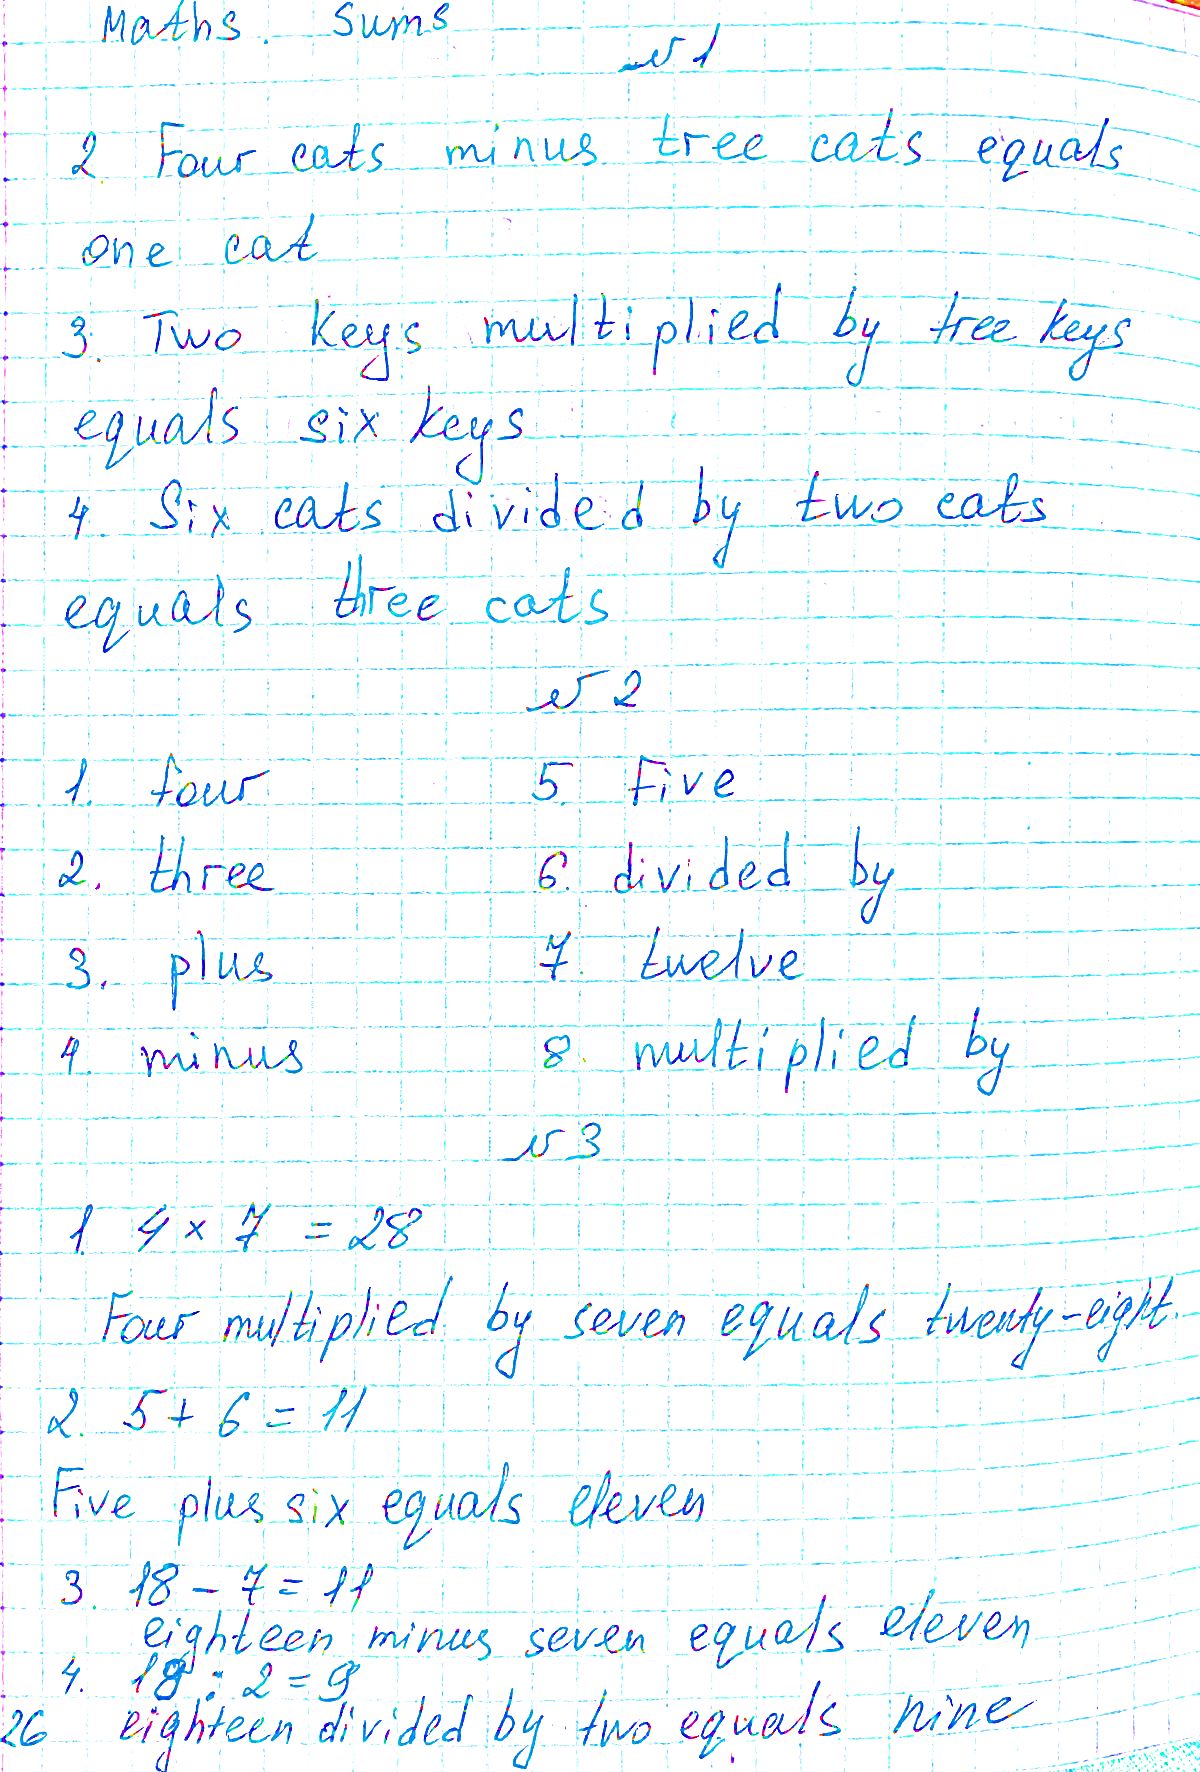 Maths. Sums
№1
2. Four cats minus tree cats equals
one cat
3. Two keys multiplied by tree keys
equals six keys
4. Six cats divided by two cats
equals three cats
№2
1. four 5. Five
2. three 6. divided by
3. plus 7. twelve
4. minus 8. multiplied by
№3
1. 4 × 7 = 28
Four multiplied by seven equals twenty-eight.
2. 5 + 6 = 11
Five plus six equals eleven
3. 18 - 7 = 11
eighteen minus seven equals eleven
4. 18 : 2 = 9
26 eighteen divided by two equals nine